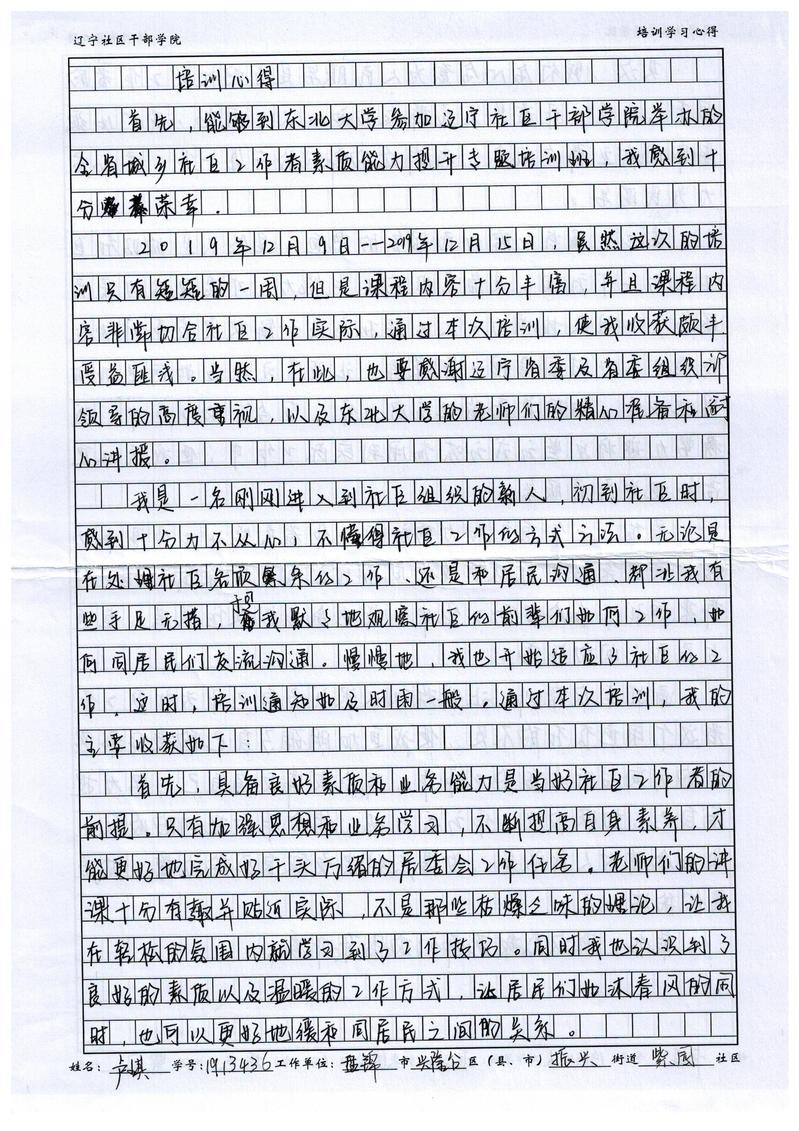 辽宁社区干部学院 培训学习心得
培训心得
首先,能够到东北大学参加辽宁社区干部学院举办的
全省城乡社区工作者素质能力提升专题培训班,我感到十
分荣幸.
2019年12月9日--2019年12月15日,虽然这次的培
训只有短短的一周,但是课程内容十分丰富,并且课程内
容非常切合社区工作实际,通过本次培训,使我收获颇丰
受益匪浅。当然,在此,也要感谢辽宁省委及省委组织部
领导的高度重视,以及东北大学的老师们的精心准备和耐
心讲授。
我是一名刚刚进入到社区组织的新人,初到社区时,
感到十分力不从心,不懂得社区工作的方式方法。无论是
在处理社区各项繁杂的工作、还是和居民沟通,都让我有
些手足无措,于是我默默地观察社区的前辈们如何工作,如
何同居民们交流沟通。慢慢地,我也开始适应了社区的工
作,这时,培训通知如及时雨一般。通过本次培训,我的
主要收获如下:
首先,具备良好素质和业务能力是当好社区工作者的
前提。只有加强思想和业务学习,不断提高自身素养,才
能更好地完成好千头万绪的居委会工作任务。老师们的讲
课十分有趣并贴近实际,不是那些枯燥乏味的理论,让我
在轻松的氛围内就学习到了工作技巧。同时我也认识到了
良好的素质以及温暖的工作方式,让居民们如沐春风的同
时,也可以更好地缓和同居民之间的关系。
姓名:卢琪 学号:1913436 工作单位:盘锦 市 兴隆台 区(县、市) 振兴 街道 社区